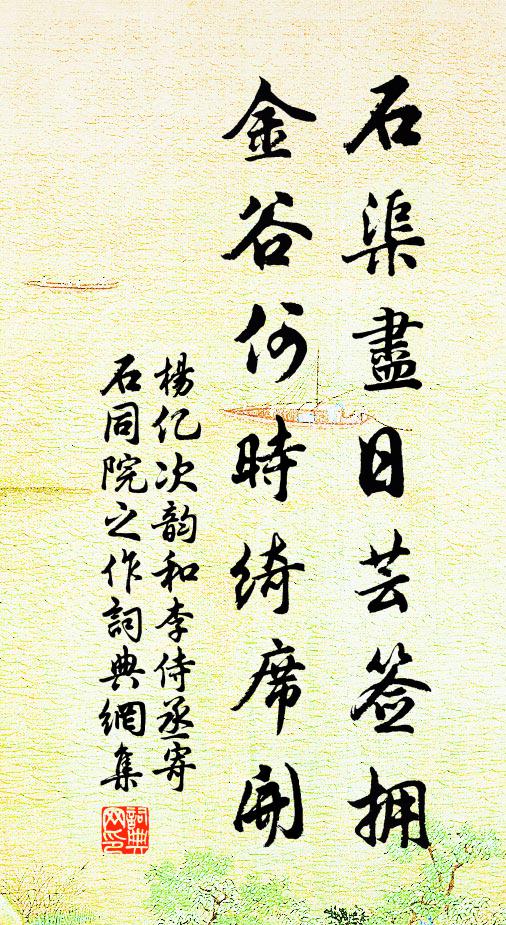 石渠盡日芸签拥
金谷何時綺席開
楊亿次韵和李侍丞寄
石同院之作詞典網集
詞典
网印